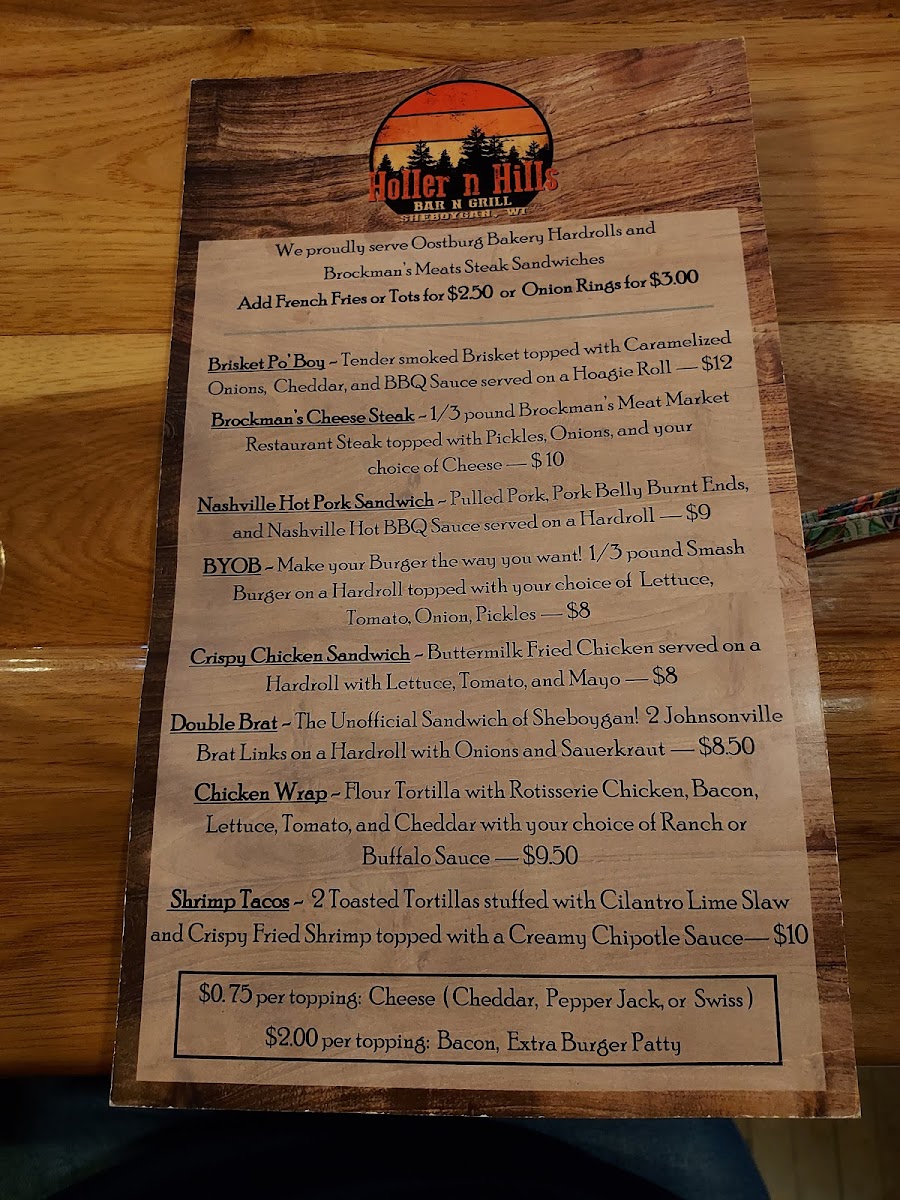 Holler n Hills
BAR N GRILL
SHEBOYGAN, WI
We proudly serve Oostburg Bakery Hardrolls and
Brockman's Meats Steak Sandwiches
Add French Fries or Tots for $2.50 or Onion Rings for $3.00
Brisket Po' Boy ~ Tender smoked Brisket topped with Caramelized
Onions, Cheddar, and BBQ Sauce served on a Hoagie Roll — $12
Brockman's Cheese Steak ~ 1/3 pound Brockman's Meat Market
Restaurant Steak topped with Pickles, Onions, and your
choice of Cheese — $10
Nashville Hot Pork Sandwich ~ Pulled Pork, Pork Belly Burnt Ends,
and Nashville Hot BBQ Sauce served on a Hardroll — $9
BYOB ~ Make your Burger the way you want! 1/3 pound Smash
Burger on a Hardroll topped with your choice of Lettuce,
Tomato, Onion, Pickles — $8
Crispy Chicken Sandwich ~ Buttermilk Fried Chicken served on a
Hardroll with Lettuce, Tomato, and Mayo — $8
Double Brat ~ The Unofficial Sandwich of Sheboygan! 2 Johnsonville
Brat Links on a Hardroll with Onions and Sauerkraut — $8.50
Chicken Wrap ~ Flour Tortilla with Rotisserie Chicken, Bacon,
Lettuce, Tomato, and Cheddar with your choice of Ranch or
Buffalo Sauce — $9.50
Shrimp Tacos ~ 2 Toasted Tortillas stuffed with Cilantro Lime Slaw
and Crispy Fried Shrimp topped with a Creamy Chipotle Sauce— $10
$0.75 per topping: Cheese (Cheddar, Pepper Jack, or Swiss)
$2.00 per topping: Bacon, Extra Burger Patty